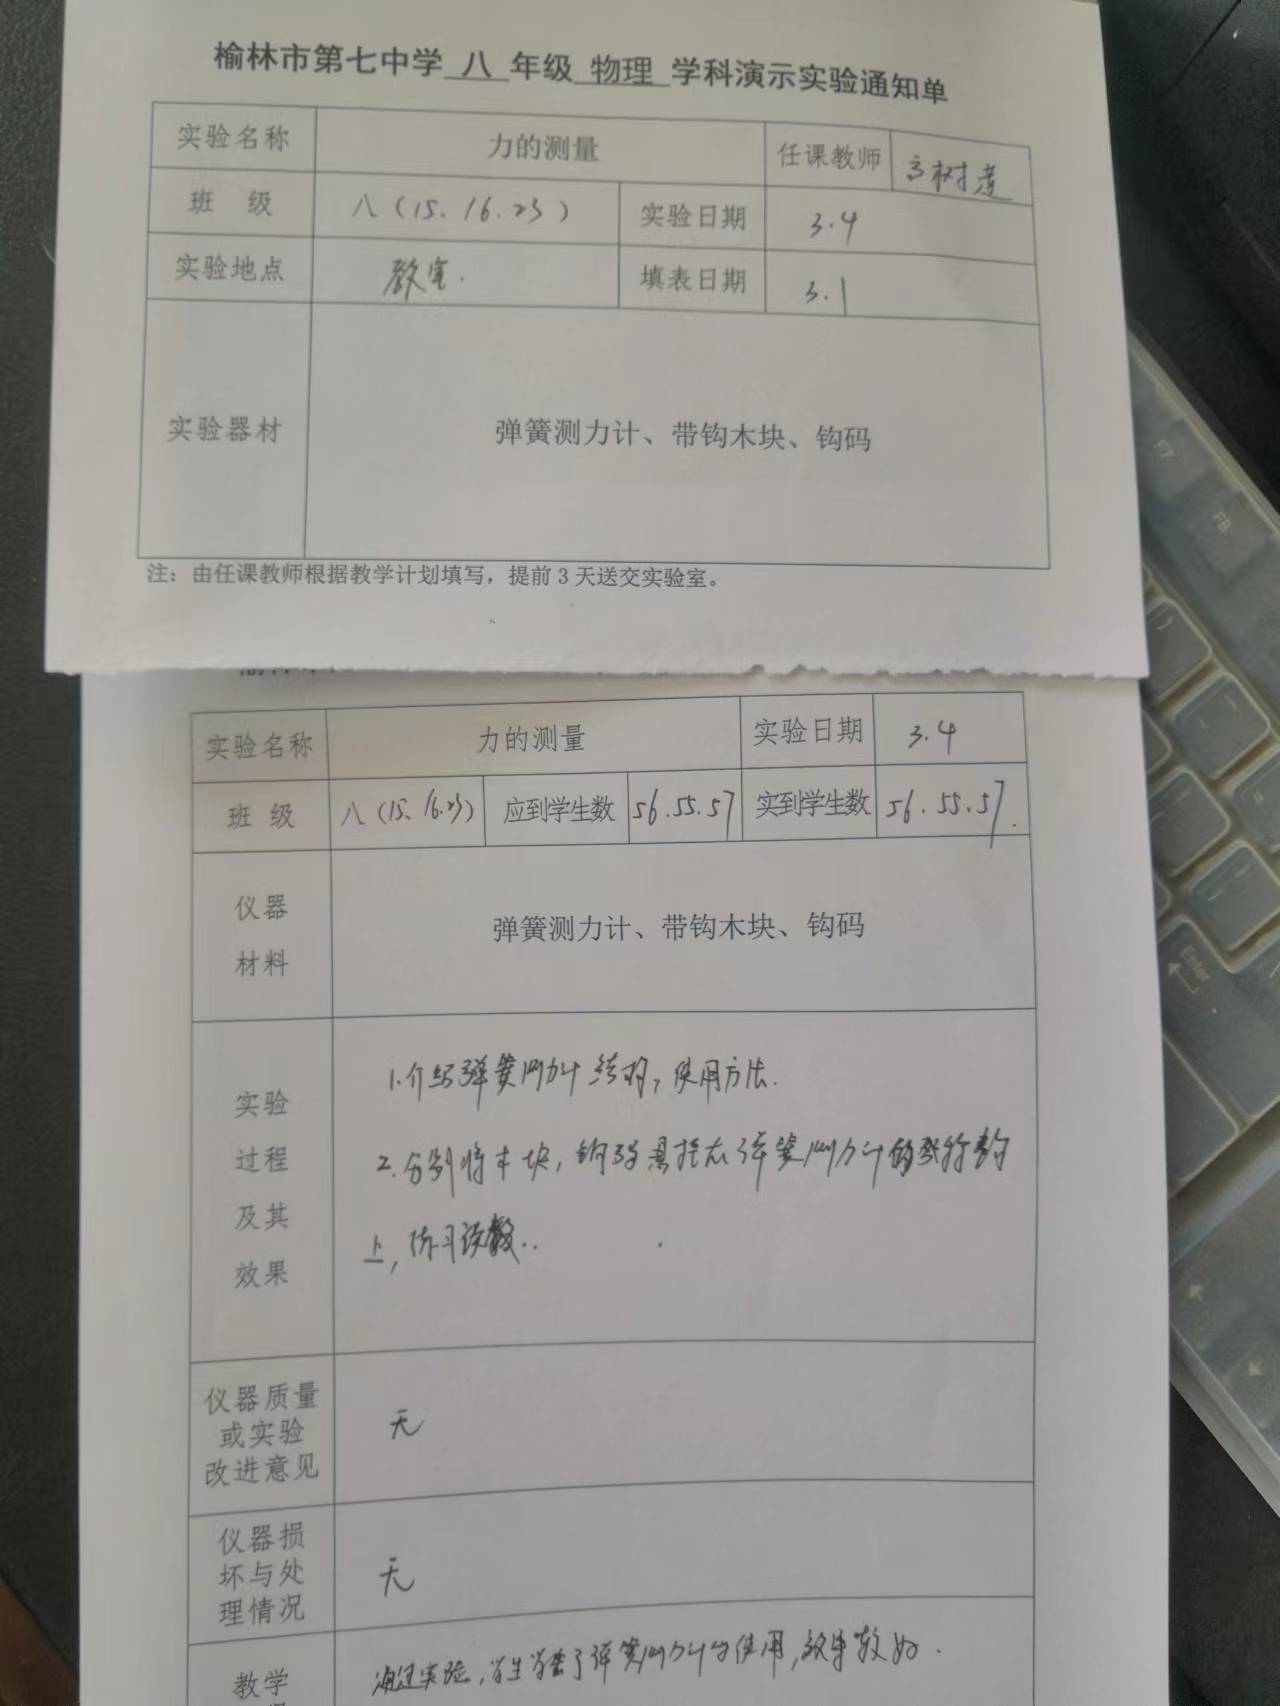 榆林市第七中学 八 年级 物理 学科演示实验通知单
实验名称 力的测量 任课教师 高树
班 级 八(15.16.23) 实验日期 3.4
实验地点 教室. 填表日期 3.1
实验器材 弹簧测力计、带钩木块、钩码
注：由任课教师根据教学计划填写，提前3天送交实验室。
实验名称 力的测量 实验日期 3.4
班 级 八(15.16.23) 应到学生数 56.55.57 实到学生数 56.55.57.
仪器
材料
弹簧测力计、带钩木块、钩码
实验
过程
及其
效果
1.介绍弹簧测力计结构，使用方法.
2.分别将木块，钩码悬挂在弹簧测力计的钩
上，练习读数..
仪器质量
或实验
改进意见
无
仪器损
坏与处
理情况
无
教学
通过实验，学生学会了弹簧测力计的使用，效果较好.